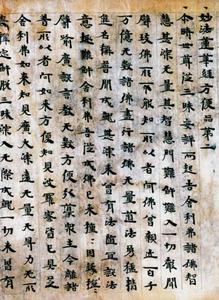 妙法蓮華經方便品第二
尒時世尊從三昧安詳而起告舍利弗諸佛智
慧甚深无量其智慧門難解難入一切聲聞
辟支佛所不能知所以者何佛曾親近百千
万億无數諸佛盡行諸佛无量道法勇猛精
進名稱普聞成就甚深未曾有法隨宜所說
意趣難解舍利弗吾從成佛已來種種因緣種種
譬喻廣演言教无數方便引導眾生令離諸
著所以者何如來方便知見波羅蜜皆已具足
舍利弗如來知見廣大深遠无量无礙力无所
畏禪定解脫三昧深入无際成就一切未曾有